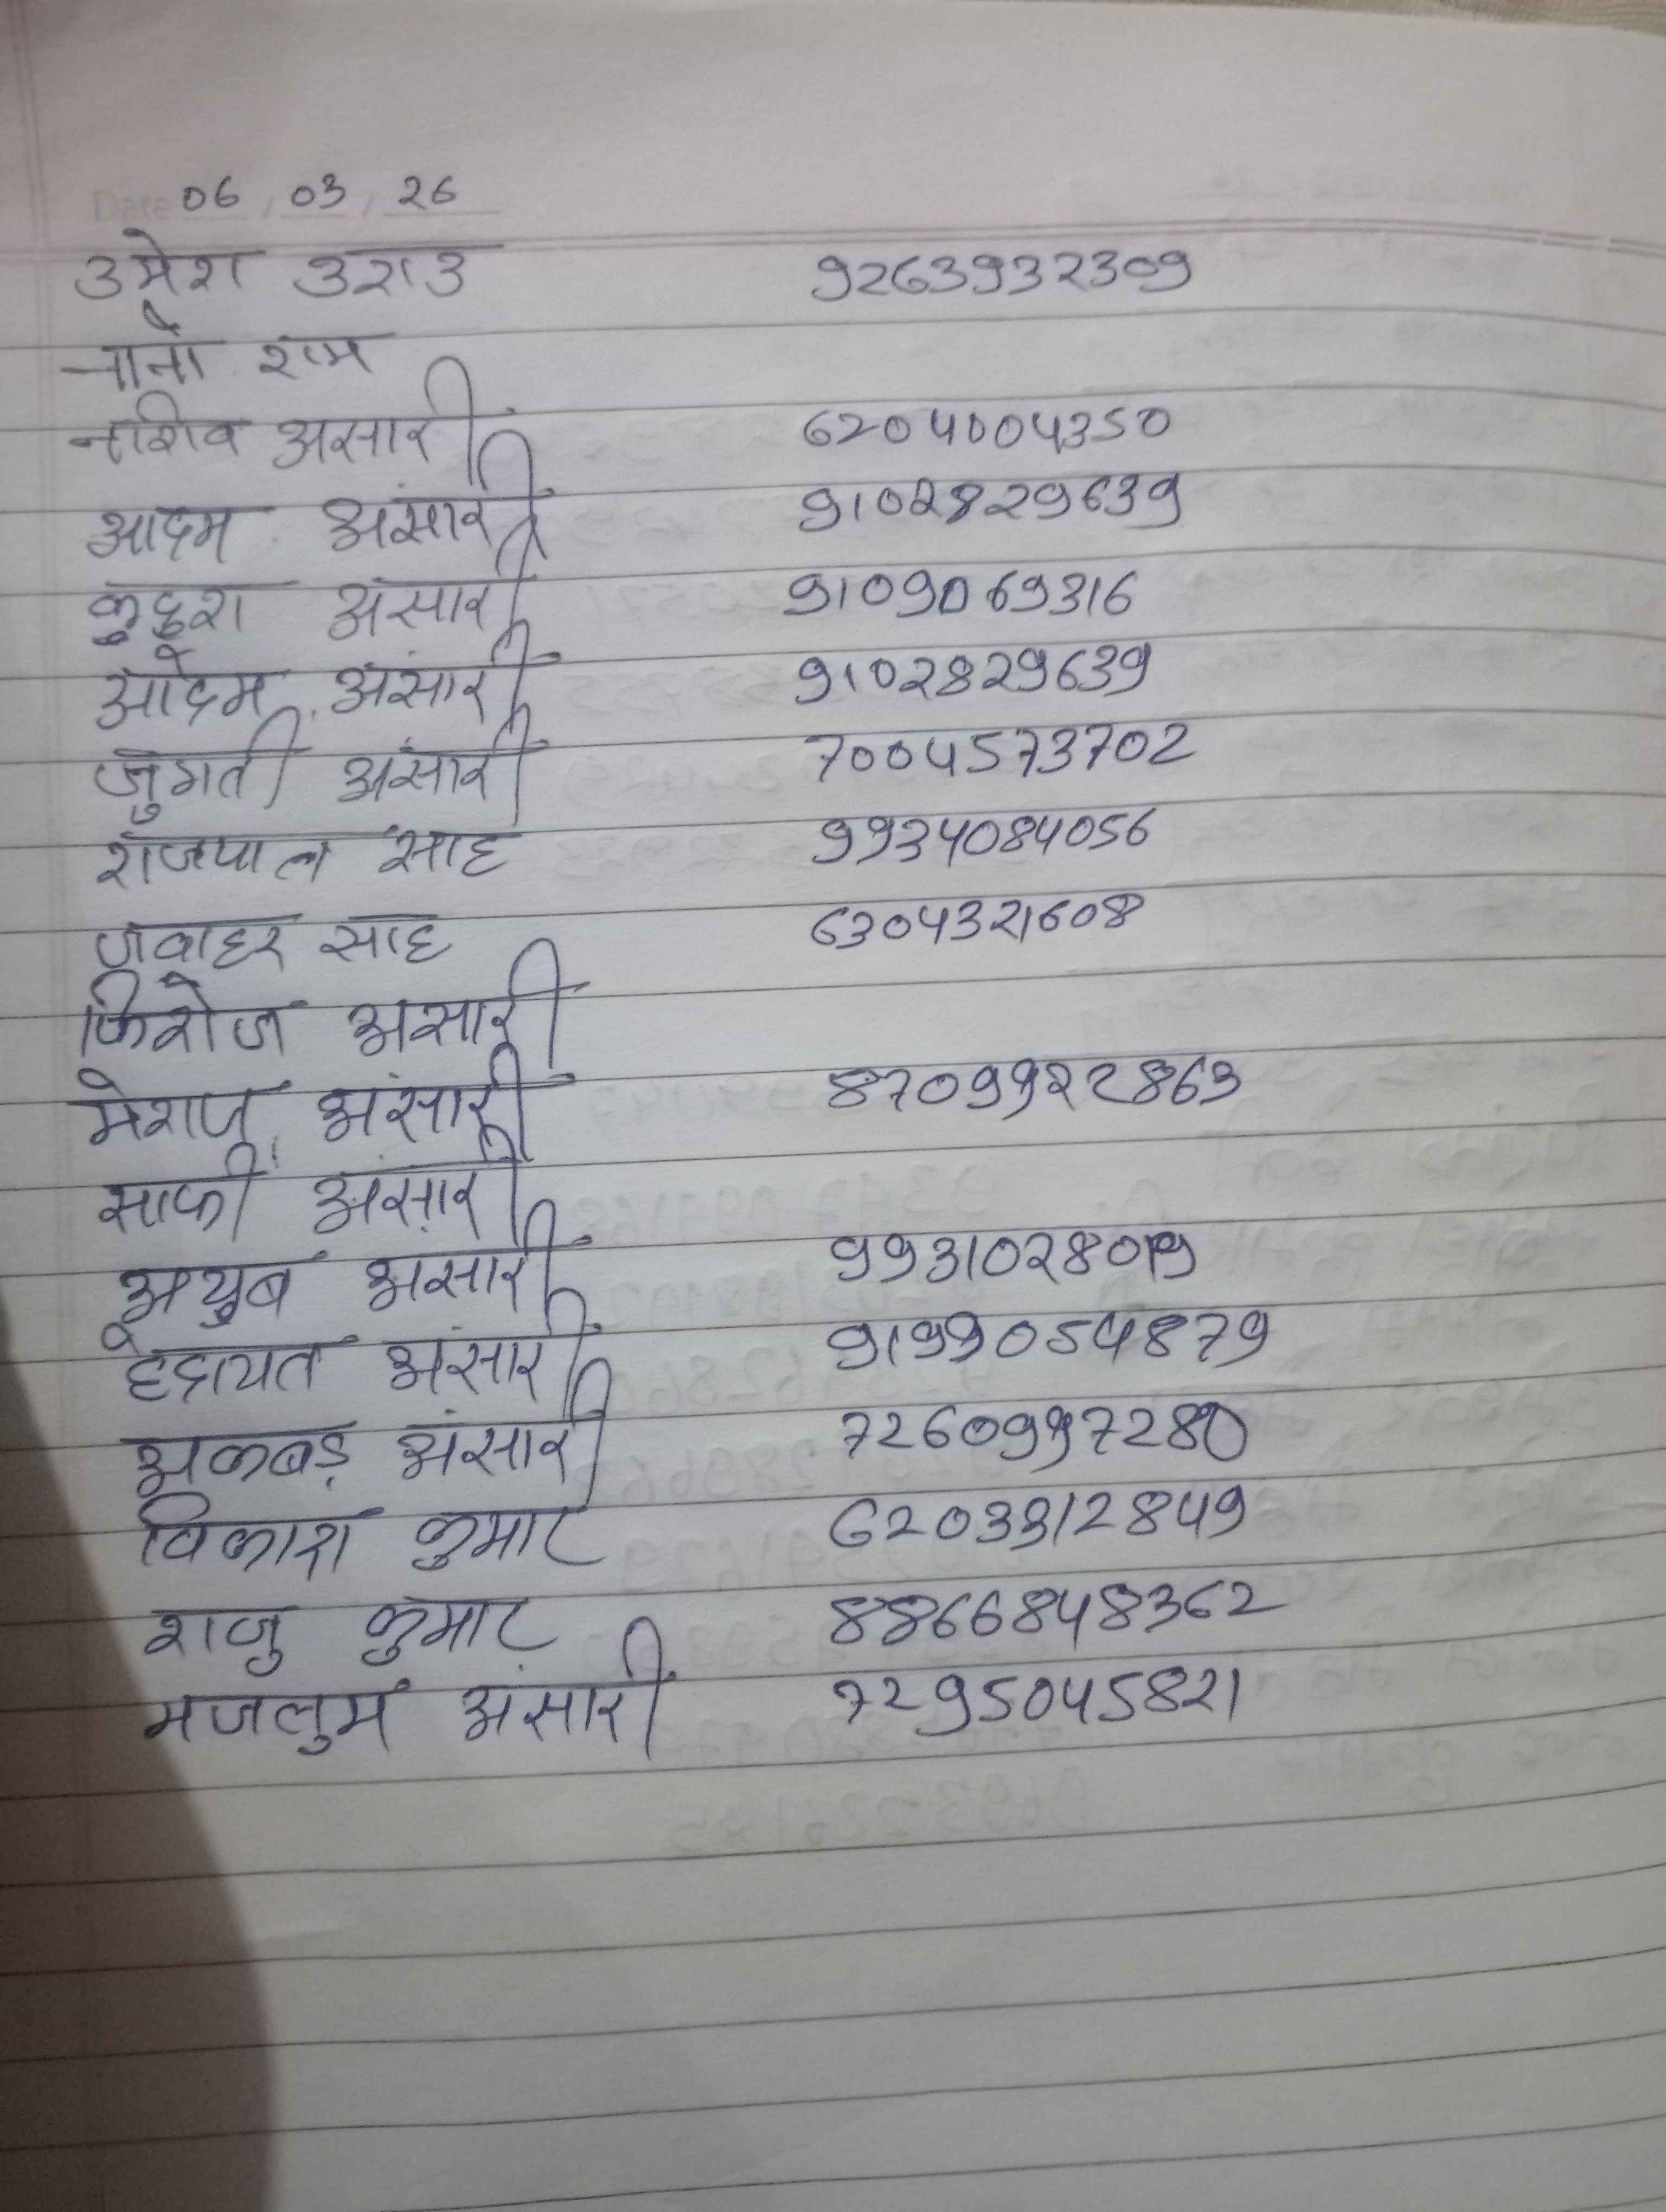 Date 06 / 03 / 26
उमेश उराउ 9263932309
नानो राम
नाशिव अंसारी 6204004350
आदम अंसारी 9102829639
कुदुश अंसारी 9109069316
आदेम अंसारी 9102829639
जुगती अंसारी 7004573702
राजपाल साह 9934084056
जवाहर साह 6304321608
फिरोज अंसारी
मेराज अंसारी 8709922863
साफी अंसारी
अयुब अंसारी 9931028019
हेदायत अंसारी 9199054879
अकबड़ अंसारी 7260997280
विकाश कुमार 6203312849
राजु कुमार 8866848362
मजलुम अंसारी 7295045821